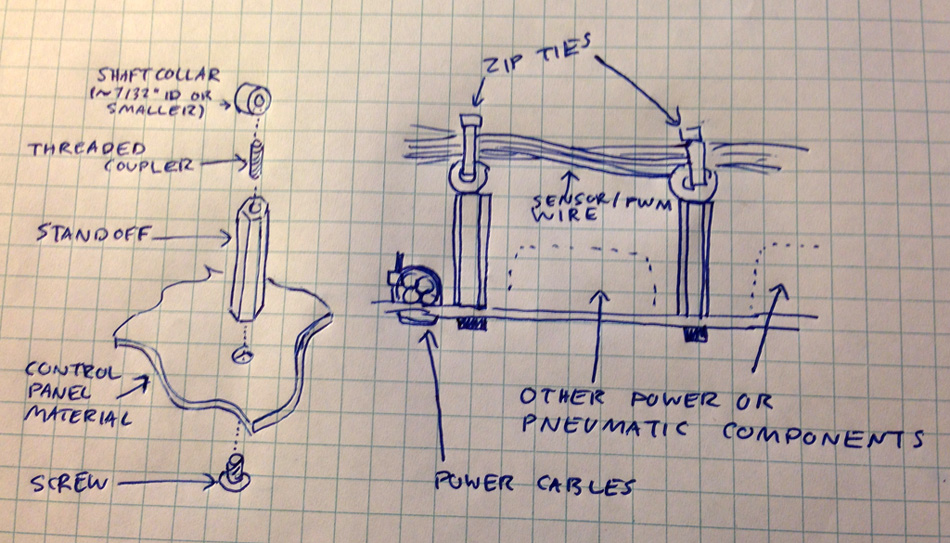 SHAFT COLLAR
(~7/32" ID OR
SMALLER)
THREADED
COUPLER
STANDOFF
CONTROL
PANEL
MATERIAL
SCREW
ZIP TIES
SENSOR/PWM
WIRE
OTHER POWER OR
PNEUMATIC COMPONENTS
POWER CABLES